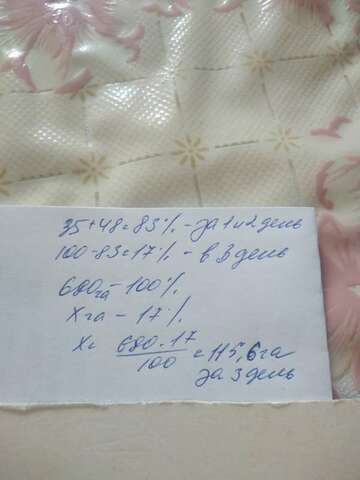 35+48=83% - за 1 и 2 день
100-83=17% - в 3 день
680га - 100%
Xга - 17%
X= 680·17/100 = 115,6га
за 3 день